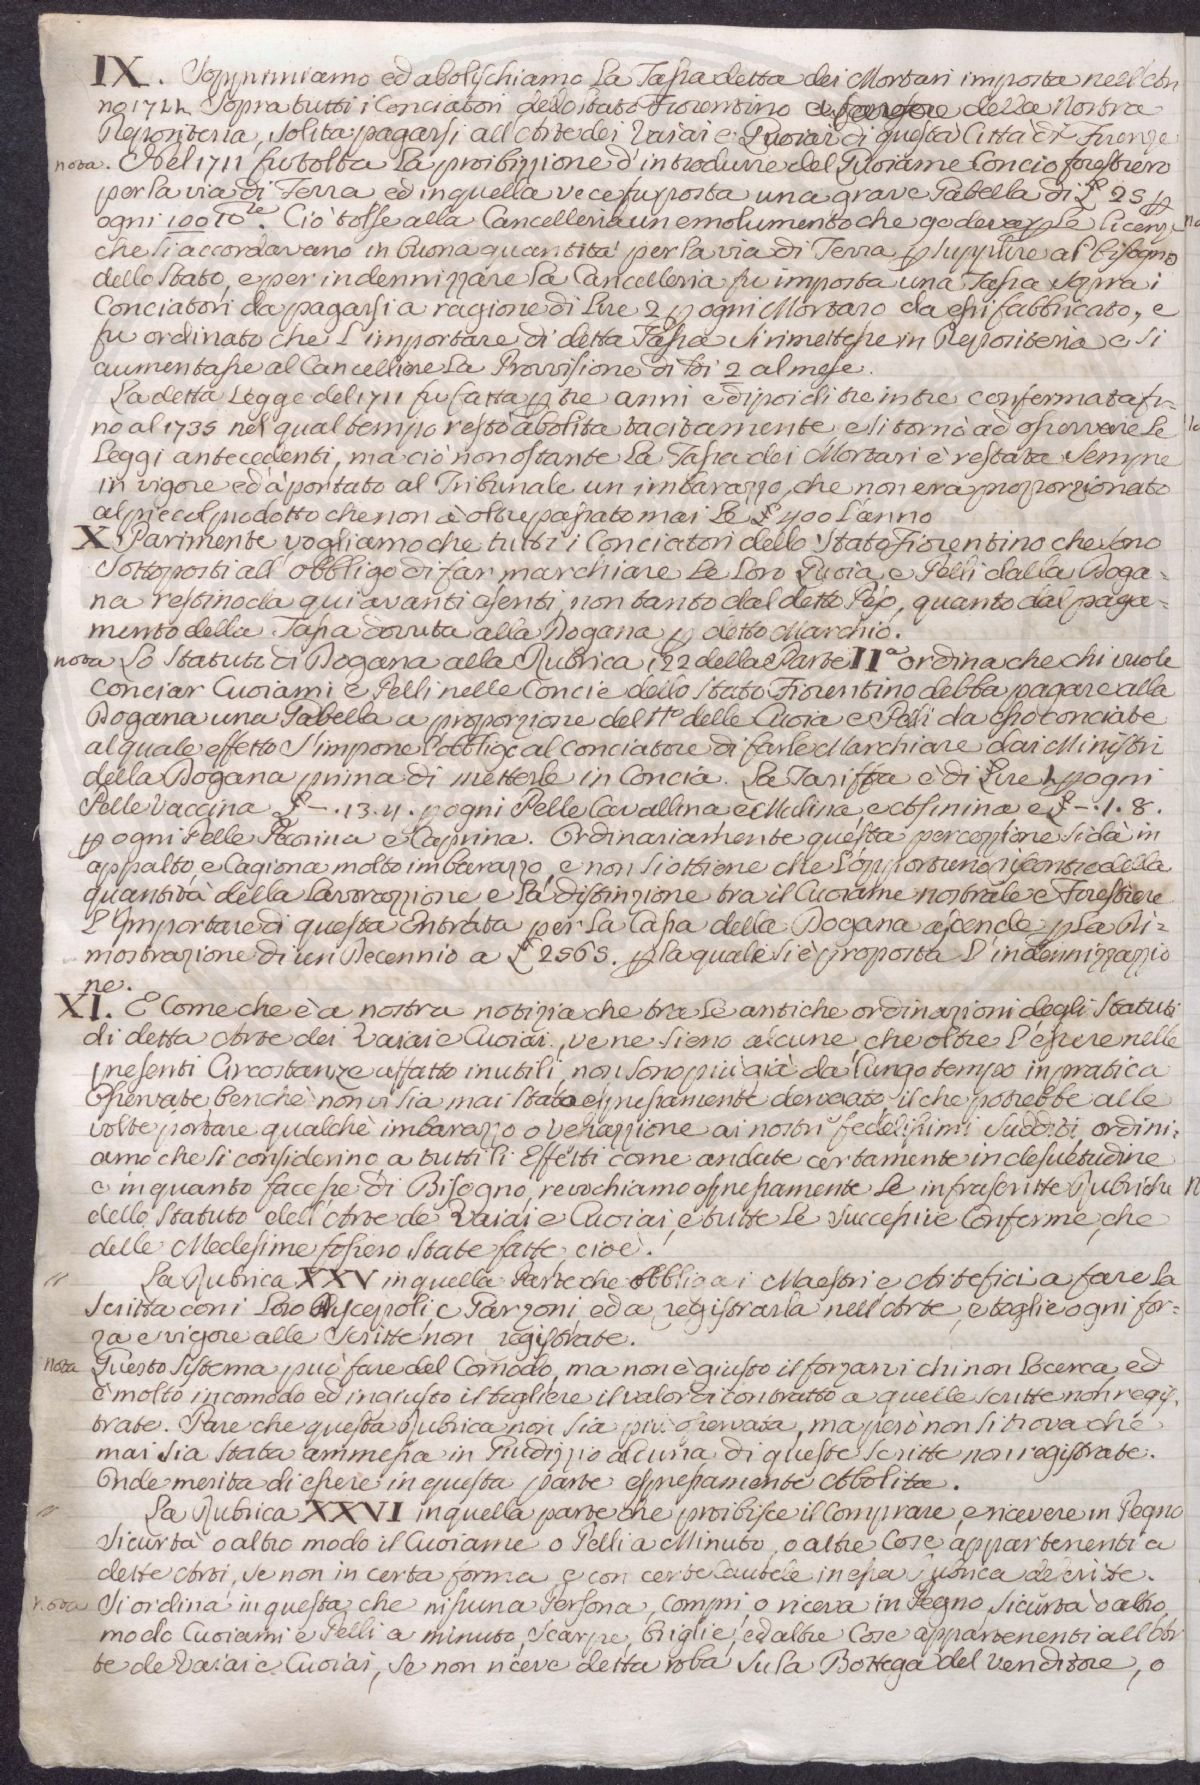 IX. Sopprimiamo ed abolischiamo La Tassa detta dei Mortari imposta nell'An
no 1711 Sopra tutti i Conciatori dello Stato Fiorentino della Nostra
Depositeria, solita pagarsi all'Arte dei Vaiai e Quoiai di questa Città di Firenze
nota. Nel 1711 fu tolta La proibizzione d'introdurre del Quoiame Concio forestiero
per la via di Terra ed in quella vece fu posta una grave Gabella di £ 25 p
ogni 100 lb.re Ciò tolse alla Cancelleria un emolumento che godeva p Le licenze
che si accordavano in buona quantità per la via di Terra p supplire al bisogno
dello Stato, e per indennizzare La Cancelleria fu imposta una Tassa sopra i
Conciatori da pagarsi a ragione di Lire 2 p ogni Mortaro da essi fabbricato, e
fu ordinato che L'importare di detta Tassa si rimettesse in Depositeria e si
aumentasse al Cancelliere La Provvisione di di 2 al mese.
La detta Legge del 1711 fu fatta p tre anni e dipoi di tre in tre confermata fi-
no al 1735 nel qual tempo restò abolita tacitamente e si tornò ad osservare Le
Leggi antecedenti, ma ciò non ostante La Tassa dei Mortari è restata sempre
in vigore ed à portato al Tribunale un imbarazzo che non era proporzionato
al piccol prodotto che non à oltrepassato mai Le £ 400 L'anno
X. Parimente vogliamo che tutti i Conciatori dello Stato Fiorentino che sono
Sottoposti all'obbligo di far marchiare Le Loro Quoia, e Pelli dalla Doga-
na restino da qui avanti esenti, non tanto dal detto Peso, quanto dal paga-
mento della Tassa dovuta alla Dogana p detto Marchio.
nota Lo Statuto di Dogana alla Rubrica 122 della Parte IIa ordina che chi vuole
Conciar Cuoiami e Pelli nelle Concie dello Stato Fiorentino debba pagare alla
Dogana una Gabella a proporzione del N.o delle Cuoia e Pelli da esso conciate
al quale effetto s'impone l'obbligo al Conciatore di farle Marchiare dai Ministri
della Dogana prima di metterle in Concia. La Tariffa è di Lire p ogni
Pelle Vaccina £ -. 13. 4. p ogni Pelle Cavallina e Mulina, e Asinina e £ -. 1. 8.
p ogni Pelle Pecorina e Caprina. Ordinariamente questa percezzione si dà in
appalto, e Cagiona molto imbarazzo, e non si ottiene che L'opportuno riscontro della
quantità della Lavorazzione e La distinzione tra il Cuoiame nostrale e Forestiere
L'Importare di questa Entrata per La Cassa della Dogana ascende p La Di-
mostrazione di un Decennio a £ 2565. p la quale si è proposta L'indennizzazio
ne.
XI. E Come che è a nostra notizia che tra Le antiche ordinazioni degli Statuti
di detta Arte dei Vaiai e Cuoiai, ve ne sieno alcune, che oltre L'essere nelle
presenti Circostanze affatto inutili, non sono più già da lungo tempo in pratica
Osservate, benchè non vi sia mai stato espressamente derogato, il che potrebbe alle
volte portare qualche imbarazzo o vessazzione ai nostri fedelissimi Sudditi, ordini-
amo che si considerino a tutti li Effetti come andate certamente in desuetudine
e in quanto facesse di Bisogno, revochiamo espressamente Le infrascritte Rubriche
dello Statuto dell'Arte de Vaiai e Cuoiai, e tutte Le Successive Conferme, che
delle Medesime fossero State fatte cioè.
La Rubrica XXV in quella Parte che Obbliga i Maestri e Artefici a fare La
Scritta con i Loro Discepoli e Garzoni ed a registrarla nell'Arte, e toglie ogni for-
za e vigore alle Scritte non registrate.
Nota Questo Sistema può fare del Comodo, ma non è giusto il forzarvi chi non Lo cerca, ed
è molto incomodo ed ingiusto il togliere il valor di contratto a quelle scritte non regis-
trate. Pare che questa Rubrica non sia più Osservata, ma però non si trova che
mai sia stata ammessa in Giudizzio alcuna di queste Scritte non registrate.
Onde merita di essere in questa parte espressamente Abolita.
La Rubrica XXVI in quella parte che proibisce il Comprare, e ricevere in Pegno
Sicurtà o altro modo il Cuoiame o Pelli a Minuto, o altre Cose appartenenti a
dette Arti, se non in certa forma e con certe Cautele in essa Rubrica descritte.
nota Si ordina in questa che nissuna Persona, compri, o riceva in Pegno, Sicurtà o altro
modo Cuoiami e Pelli a minuto, Scarpe, briglie, ed altre Cose appartenenti all'Ar
te de Vaiai e Cuoiai, se non riceve detta roba su la Bottega del Venditore, o